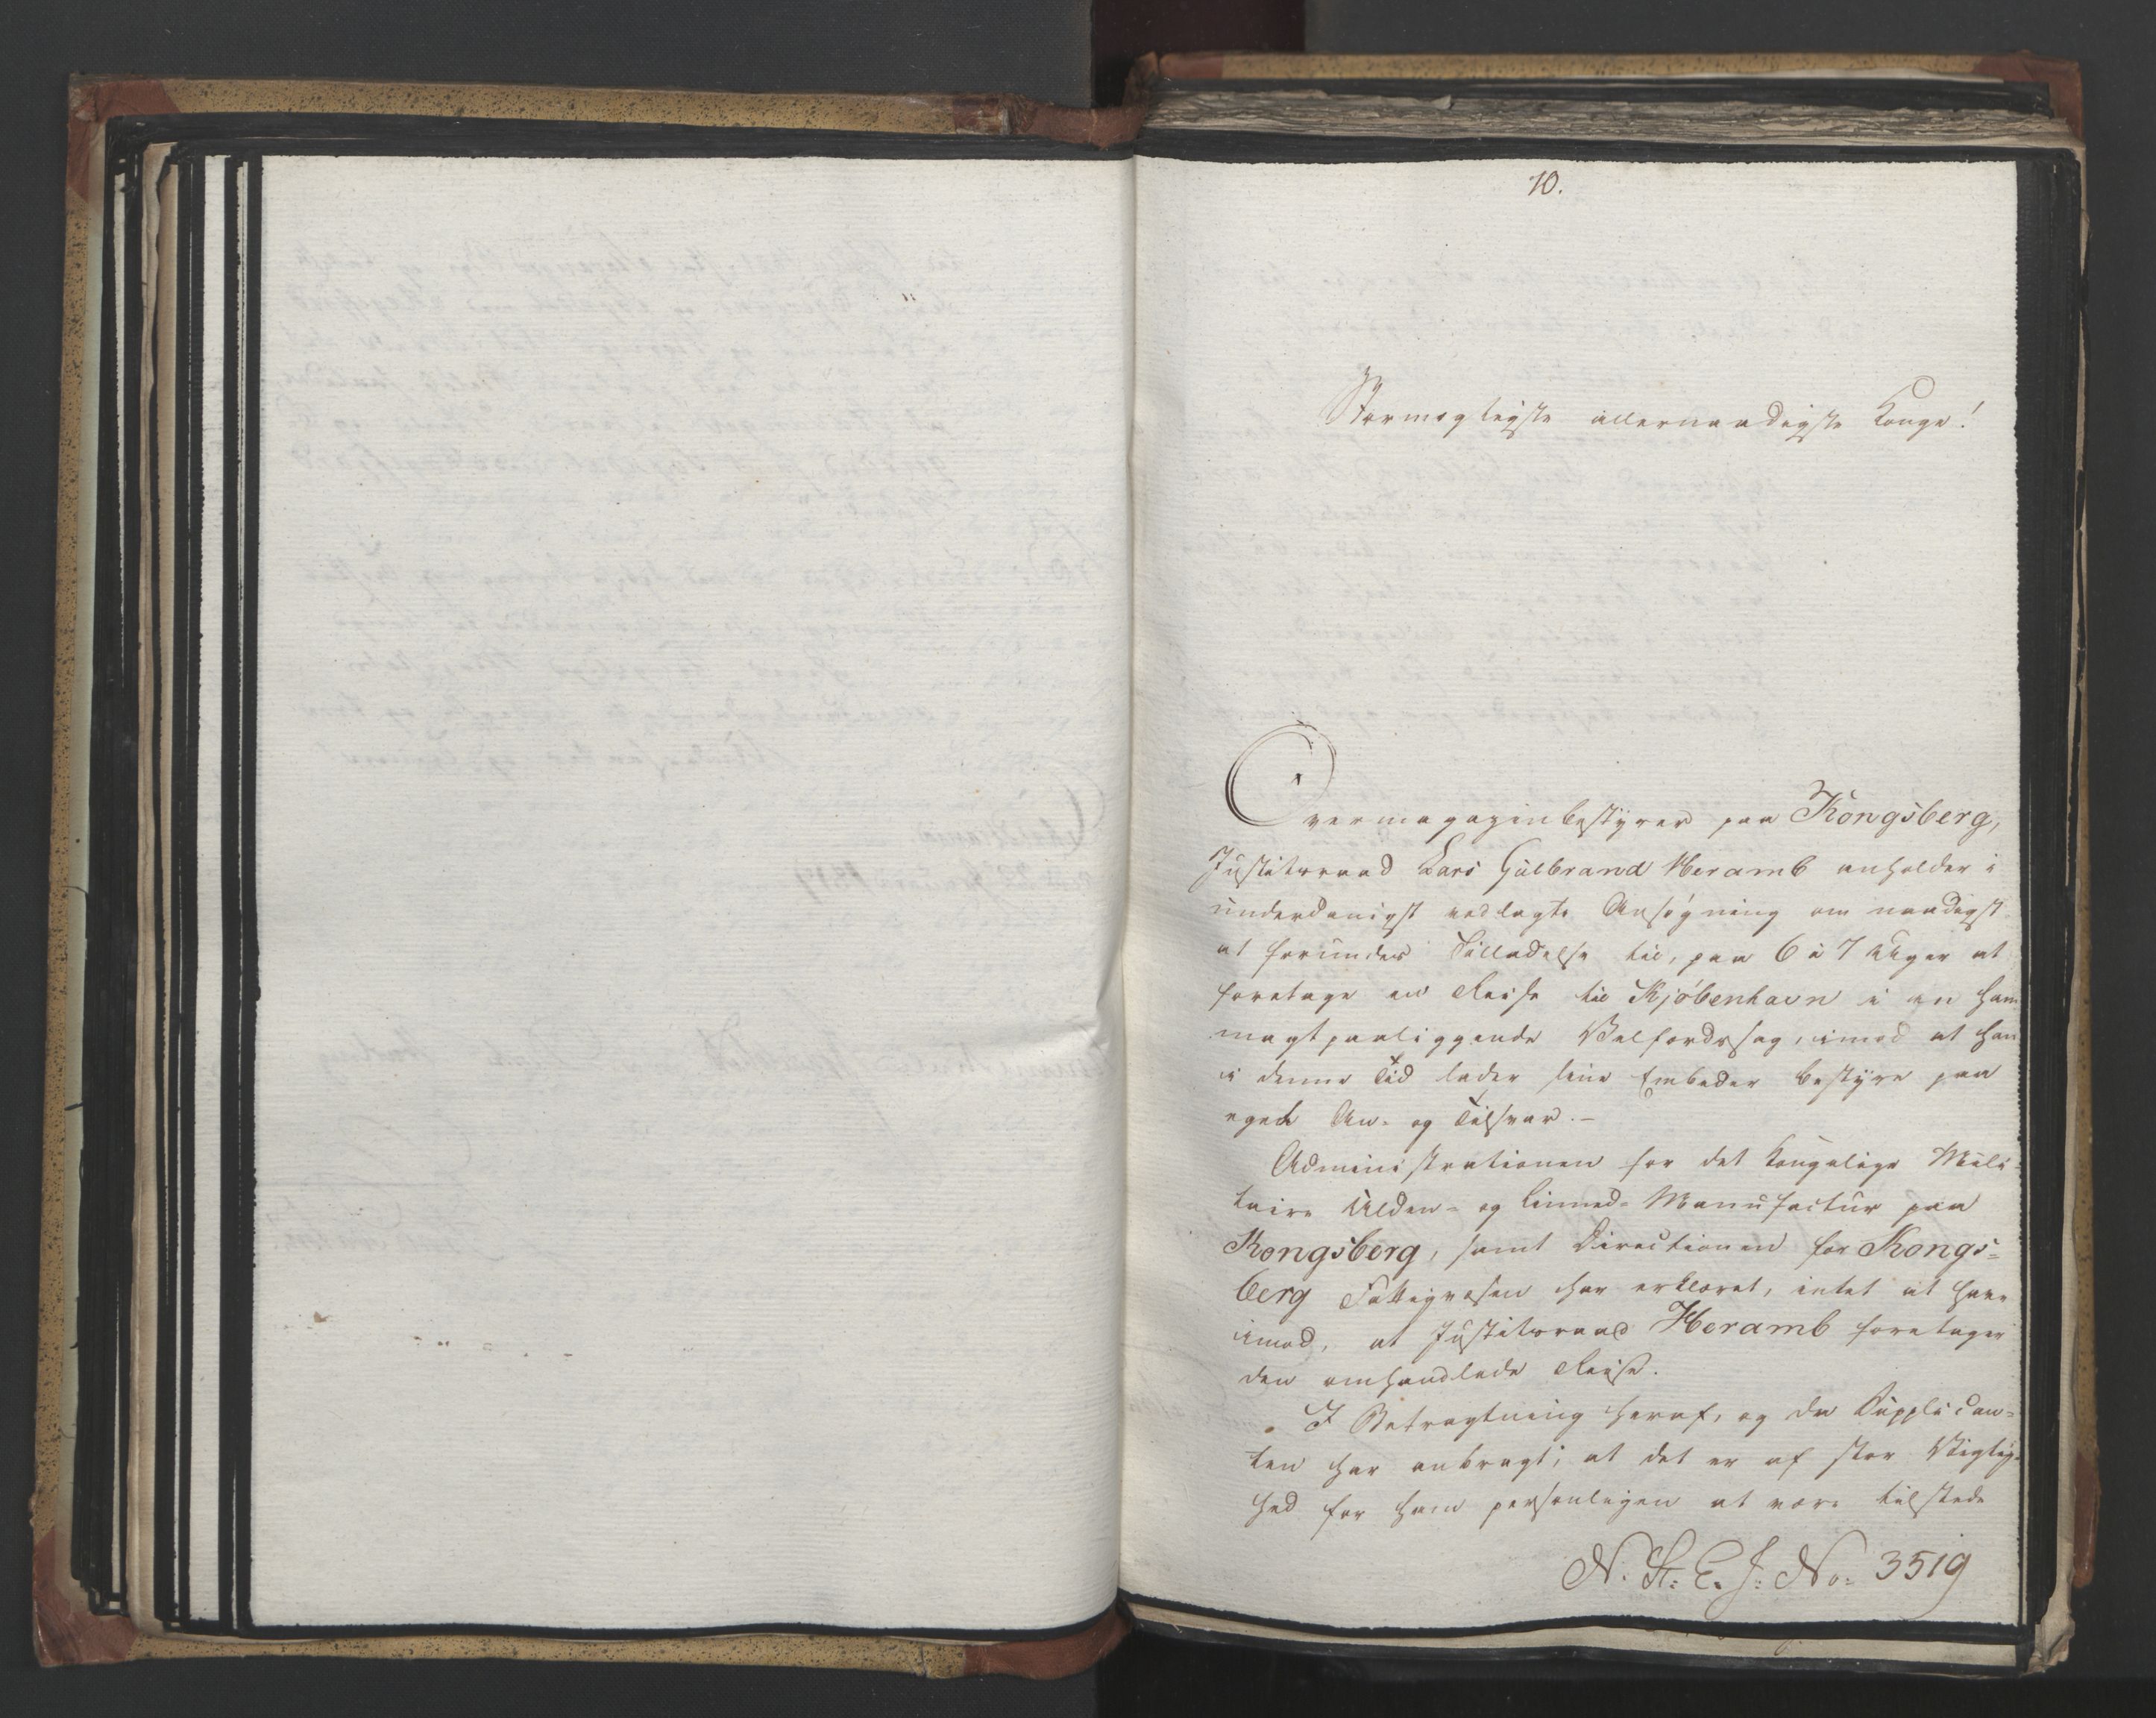 10.
Stormægtigste allernaadigste Konge!
Overmagazinbestyrer paa Kongsberg,
Justitsraad Lars Gulbrand Heramb anholder i
underdanigst vedlagte Ansøgning om naadigst
at forundes Tilladelse til, paa 6 à 7 Uger at
foretage en Reise til Kjøbenhavn i en ham
magtpaaliggende Velfærdssag, imod at han
i denne Tid lader sine Embeder bestyre paa
eget An- og Tilsvar.-
Administrationen for det Kongelige Mili-
taire Ulden- og Linned-Manufactur paa
Kongsberg, samt Directionen for Kongs-
berg Fattigvæsen har erklæret, intet at have
imod, at Justitsraad Heramb foretager
den omhandlede Reise.
I Betragtning heraf, og da Supplican-
ten har anbragt, at det er af stor Vigtig-
hed for ham personligen at være tilstede
N. St. E. J: No: 3519